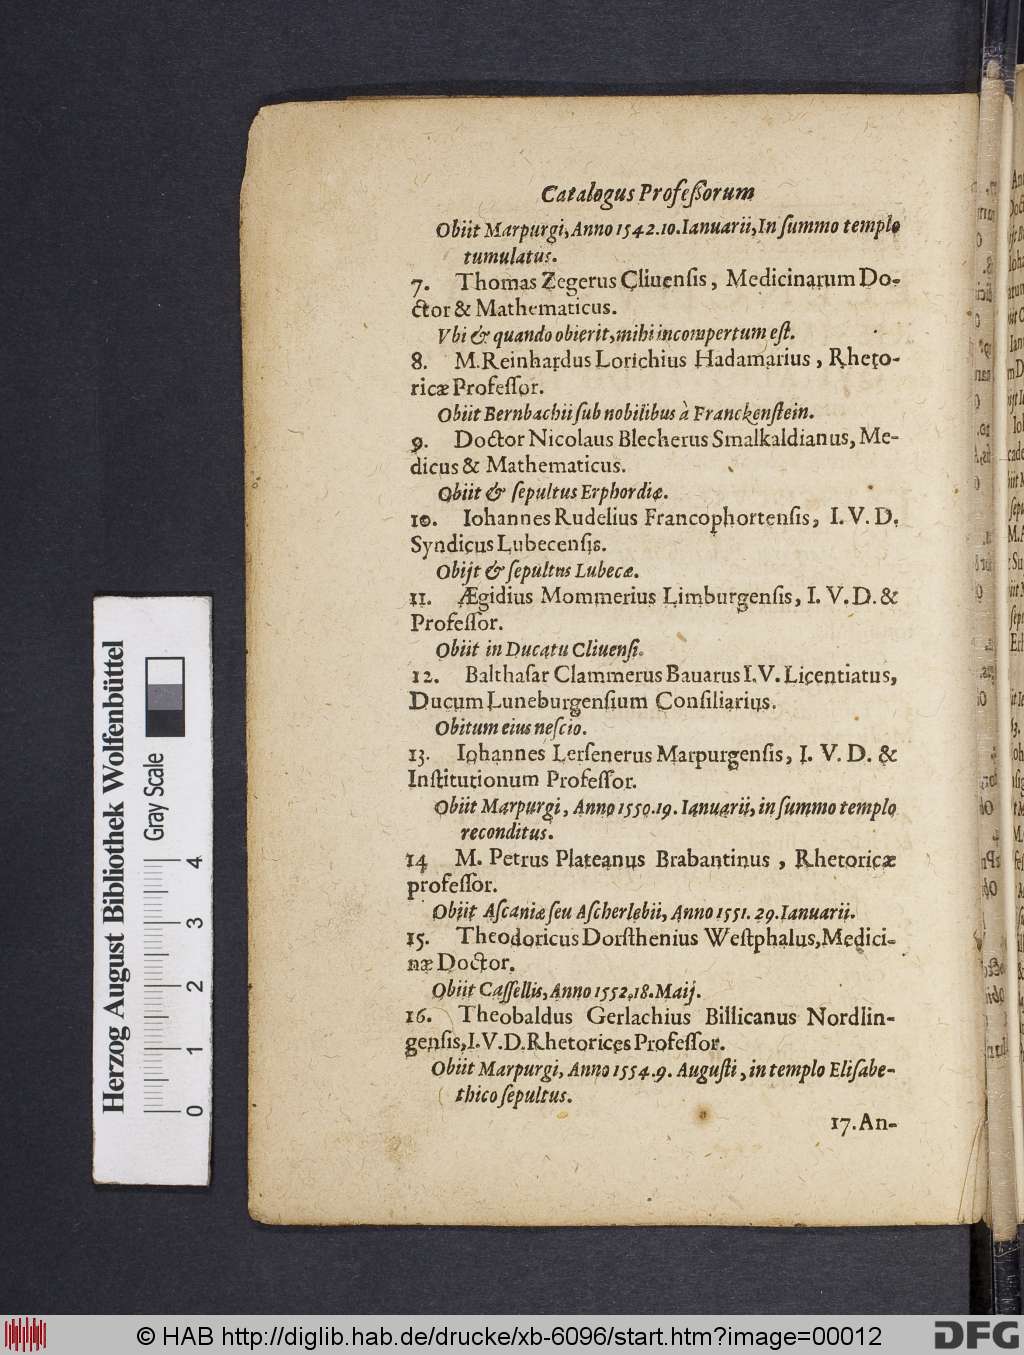 Catalogus Profeſſorum
Obiit Marpurgi, Anno 1542. 10. Ianuarii, In ſummo templo
tumulatus.
7. Thomas Zegerus Cliuenſis, Medicinarum Do-
ctor & Mathematicus.
Vbi & quando obierit, mihi incompertum eſt.
8. M. Reinhardus Lorichius Hadamarius, Rheto-
ricæ Profeſſor.
Obiit Bernbachii ſub nobilibus à Franckenſtein.
9. Doctor Nicolaus Blecherus Smalkaldianus, Me-
dicus & Mathematicus.
Obiit & ſepultus Erphordiæ.
10. Iohannes Rudelius Francophortenſis, I. V. D.
Syndicus Lubecenſis.
Obijt & ſepultus Lubecæ.
11. Ægidius Mommerius Limburgenſis, I. V. D. &
Profeſſor.
Obiit in Ducatu Cliuenſi.
12. Balthaſar Clammerus Bauarus I. V. Licentiatus,
Ducum Luneburgenſium Conſiliarius.
Obitum eius neſcio.
13. Iohannes Lerſenerus Marpurgenſis, I. V. D. &
Inſtitutionum Profeſſor.
Obiit Marpurgi, Anno 1550. 19. Ianuarii, in ſummo templo
reconditus.
14 M. Petrus Plateanus Brabantinus, Rhetoricæ
profeſſor.
Obiit Aſcaniæ ſeu Aſcherlebii, Anno 1551. 29. Ianuarii.
15. Theodoricus Dorſthenius Weſtphalus, Medici-
næ Doctor.
Obiit Caſſellis, Anno 1552, 18. Maij.
16. Theobaldus Gerlachius Billicanus Nordlin-
genſis, I. V. D. Rhetorices Profeſſor.
Obiit Marpurgi, Anno 1554. 9. Auguſti, in templo Eliſabe-
thico ſepultus.
17. An-
Herzog August Bibliothek Wolfenbüttel
Gray Scale
0 1 2 3 4
© HAB http://diglib.hab.de/drucke/xb-6096/start.htm?image=00012
DFG